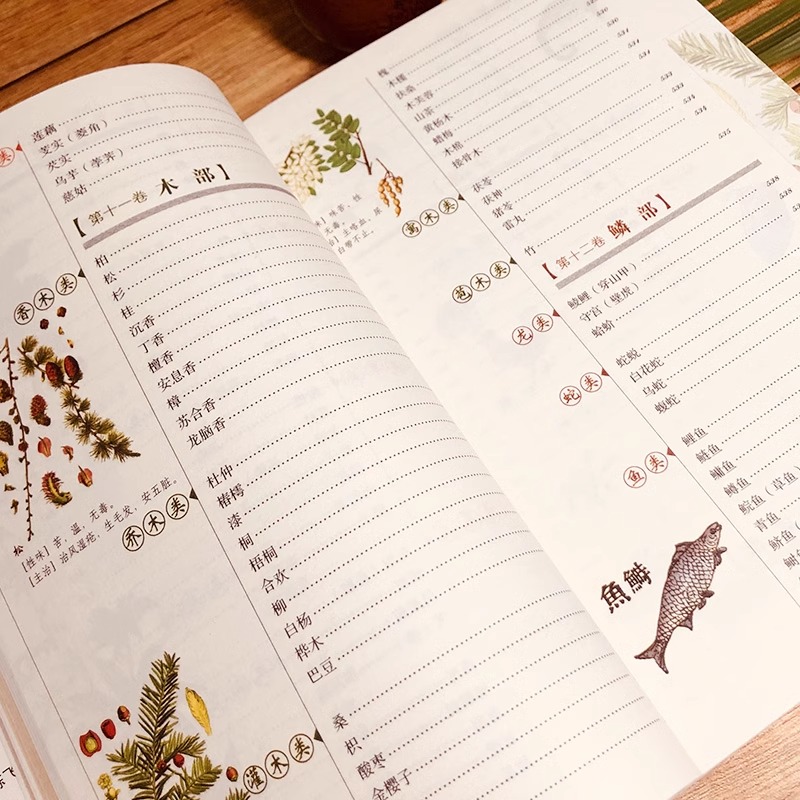 类
莲藕
芰实（菱角）
芡实
乌芋（荸荠）
慈姑
【第十一卷 木部】
香木类
柏
松
杉
桂
沉香
丁香
檀香
安息香
樟
苏合香
龙脑香
松
[性味] 苦，温，无毒。
[主治] 治风湿疮，生毛发，安五脏。
乔木类
杜仲
椿樗
漆
桐
梧桐
合欢
柳
白杨
桦木
巴豆
灌木类
桑
枳
酸枣
金樱子
槐
木槿
扶桑
木芙蓉
山茶
黄杨木
蜡梅
木棉
接骨木
530
530
531
531
531
533
533
534
534
535
寓木类
茯苓
茯神
猪苓
雷丸
苞木类
竹
【第十二卷 鳞部】
龙类
鲮鲤（穿山甲） 538
守宫（壁虎） 538
蛤蚧
蛇类
蛇蜕
白花蛇
乌蛇
蝮蛇
鱼类
鲤鱼
鲢鱼
鳙鱼
鳟鱼
鲩鱼（草鱼）
青鱼
魚鰣